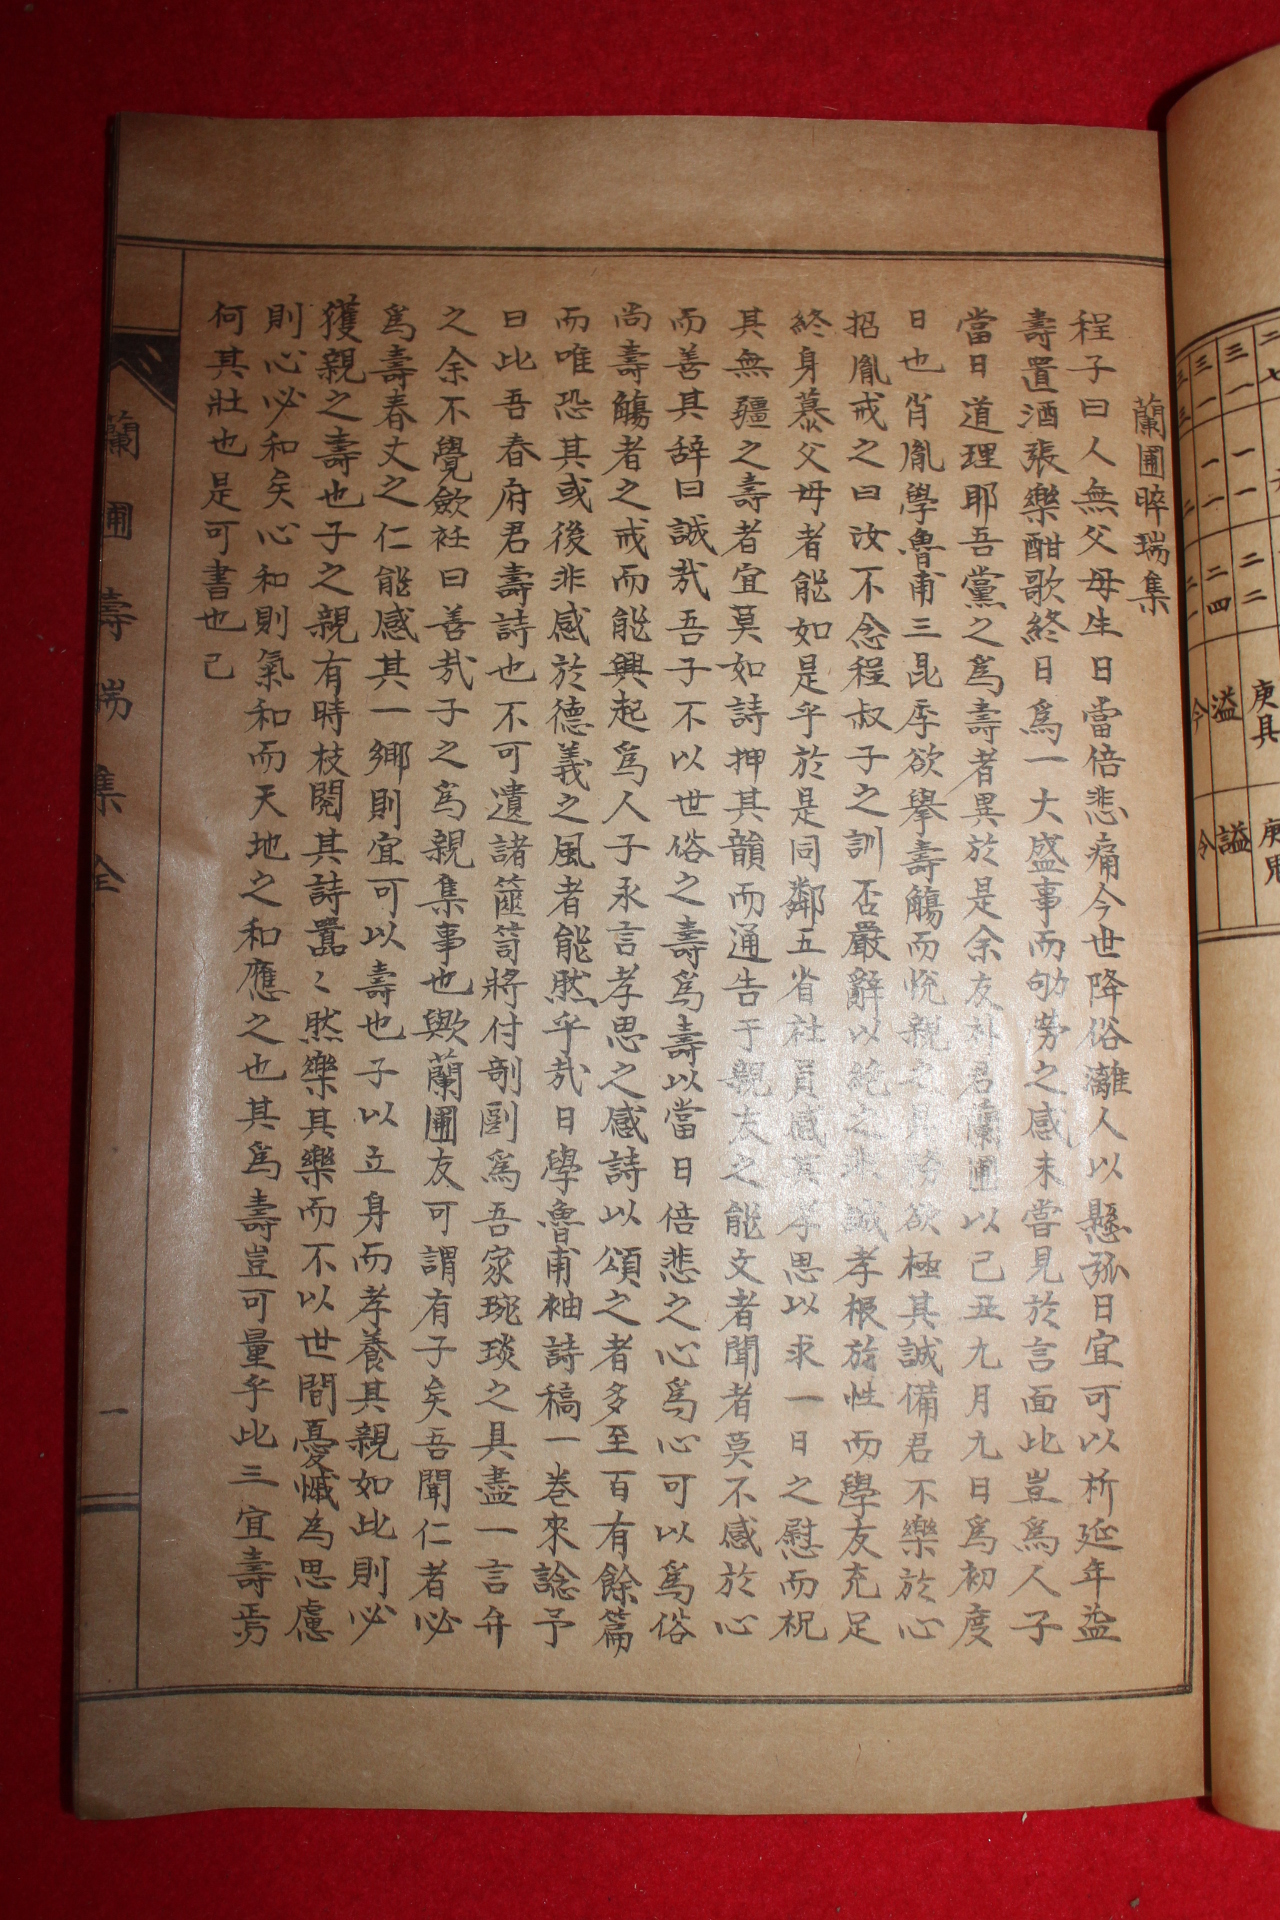 蘭圃晬瑞集
程子曰人無父母生日當倍悲痛今世降俗漓人以懸弧日宜可以析延年益
壽置酒張樂酣歌終日爲一大盛事而劬勞之感未嘗見於言面此豈爲人子
當日道理耶吾黨之爲壽者異於是余友朴君蘭圃以己丑九月九日爲初度
日也肖胤學魯甫三昆季欲擧壽觴而悅親之具勝欲極其誠備君不樂於心
招胤戒之曰汝不念程叔子之訓否嚴辭以絶之非誠孝根於性而學友充足
終身慕父母者能如是乎於是同鄰五省社員感其孝思以求一日之慰而祝
其無疆之壽者宜莫如詩押其韻而通告于親友之能文者聞者莫不感於心
而善其辞曰誠哉吾子不以世俗之壽爲壽以當日倍悲之心爲心可以爲俗
尚壽觴者之戒而能興起爲人子永言孝思之感詩以頌之者多至百有餘篇
而唯恐其或後非感於德義之風者能然乎哉日學魯甫袖詩稿一巻來諗予
曰此吾春府君壽詩也不可遺諸篋笥將付剞劂爲吾家琬琰之具盍一言弁
之余不覺歛衽曰善哉子之爲親集事也歟蘭圃友可謂有子矣吾聞仁者必
爲壽春丈之仁能感其一鄉則宜可以壽也子以立身而孝養其親如此則必
獲親之壽也子之親有時枝閱其詩囂〻然樂其樂而不以世間憂慽為思慮
則心必和矣心和則氣和而天地之和應之也其爲壽豈可量乎此三宜壽焉
何其壯也是可書也已
蘭圃壽瑞集全
一